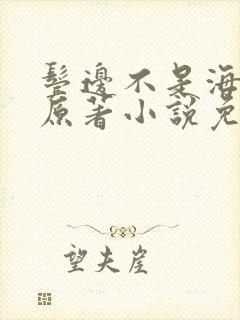 鬓邊不是海
原著小說免
望夫崖